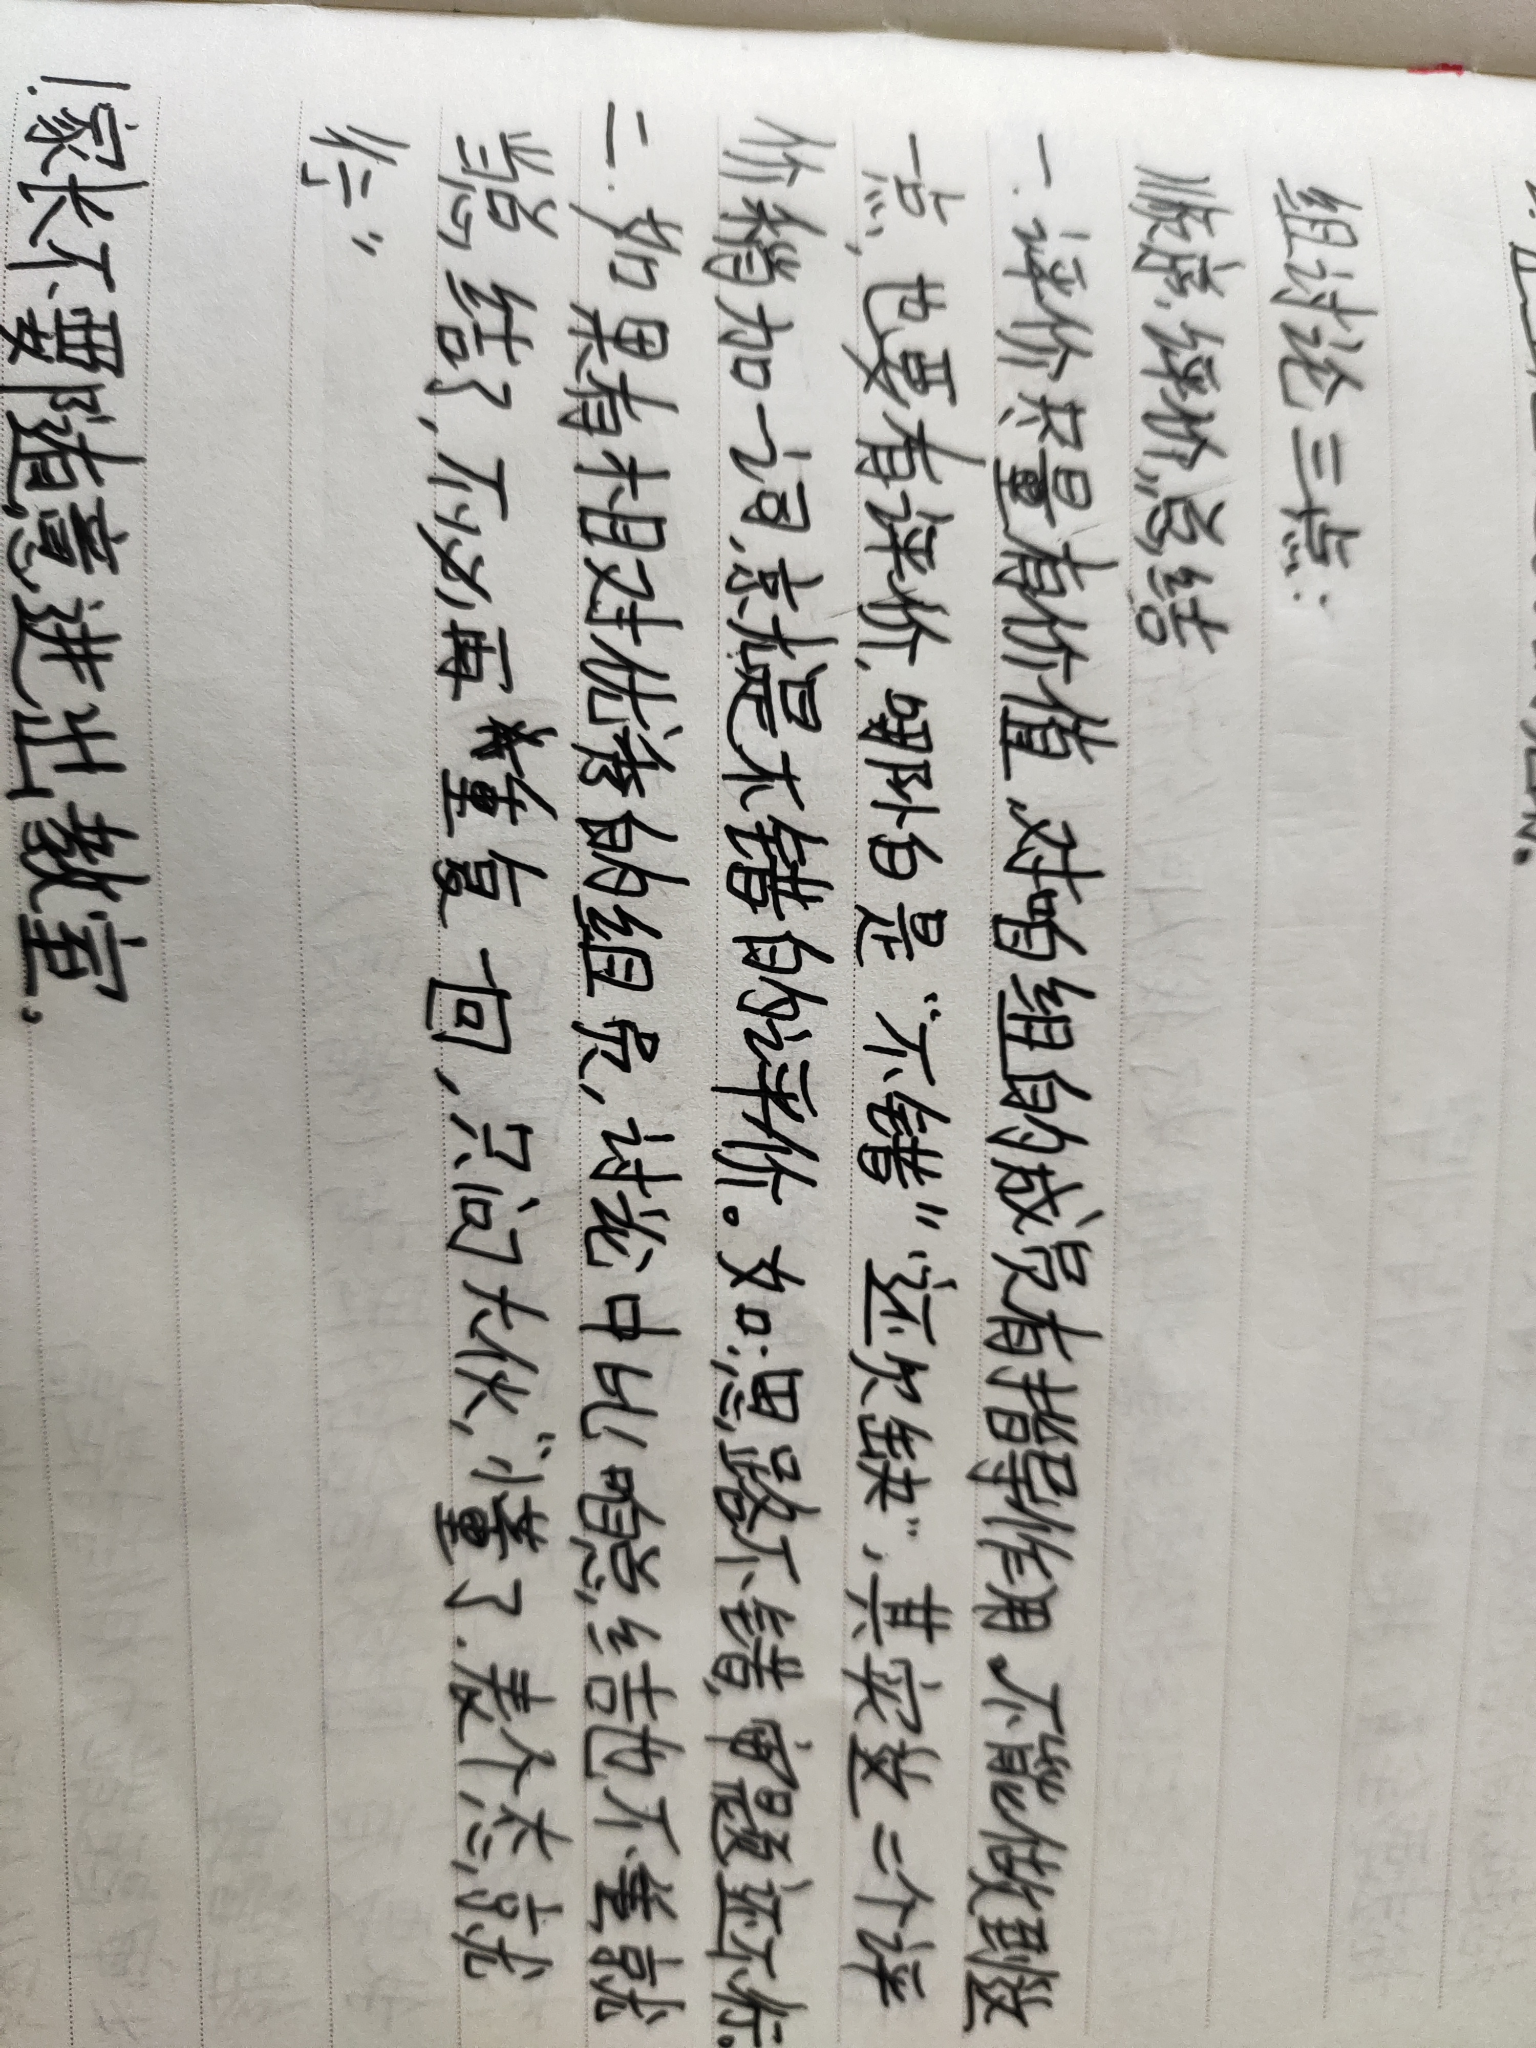 组讨论三点:
顺序、评价、总结
一. 评价尽量有价值、对咱组的成员有指导作用、不能做到这
一点、也要有评价、哪怕是“不错”“还欠缺”,其实这二个评
价稍加一词、就是不错的评价。如:思路不错,审题还不行.
二. 如果有相对优秀的组员,讨论中比啥总结也不等就
当总结了,不必再重复一回,只问大伙,“懂了.表个态,就
行.”
1.家长不要随意进出教室.